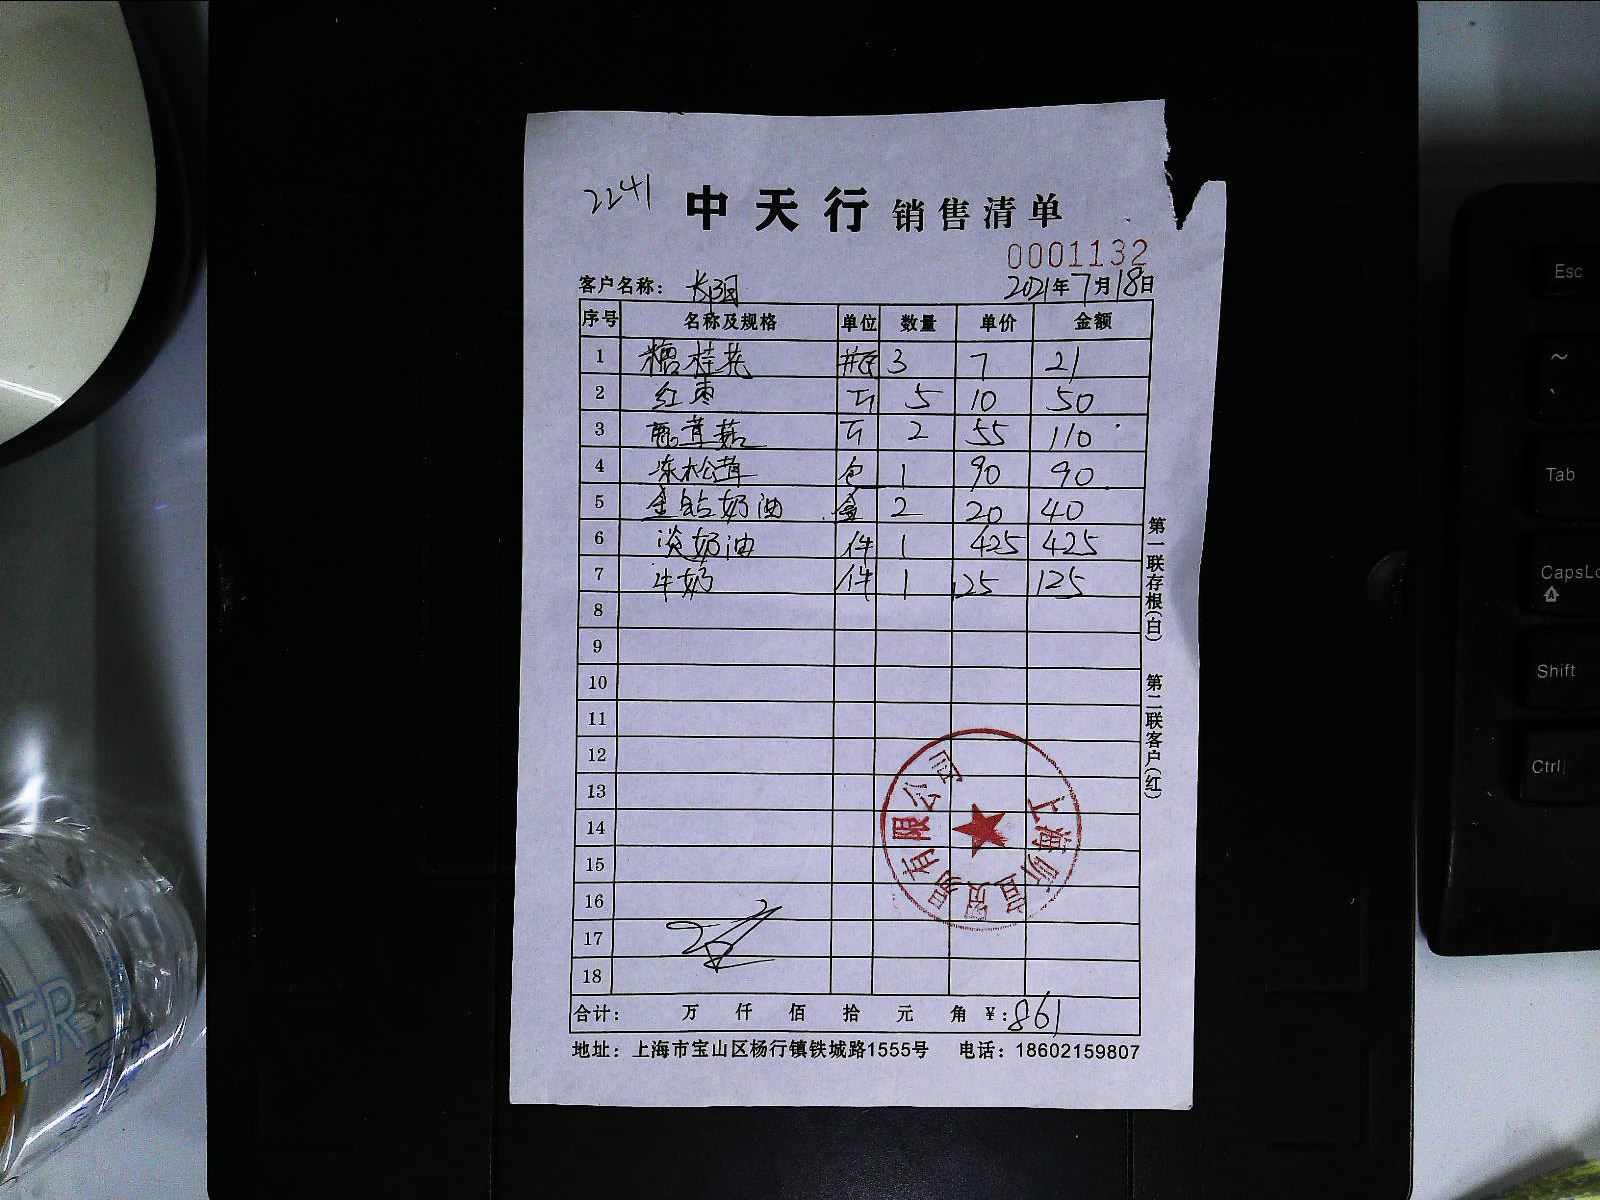 2241
中天行 销售清单
0001132
客户名称： 2021年7月18日
序号 名称及规格 单位 数量 单价 金额
1 糖桂花 瓶 3 7 21
2 红枣 斤 5 10 50
3 鹿茸菇 斤 2 55 110
4 冻松茸 包 1 90 90
5 金钻奶油 盒 2 20 40
6 淡奶油 件 1 425 425
7 牛奶 件 1 125 125
8
9
10
11
12
13
14
15
16
17
18
上海 贸易有限公司
合计： 万 仟 佰 拾 元 角 ¥:861
地址：上海市宝山区杨行镇铁城路1555号 电话：18602159807
第一联存根(白) 第二联客户(红)
Esc
~
`
Tab
CapsLo
Shift
Ctrl
ER